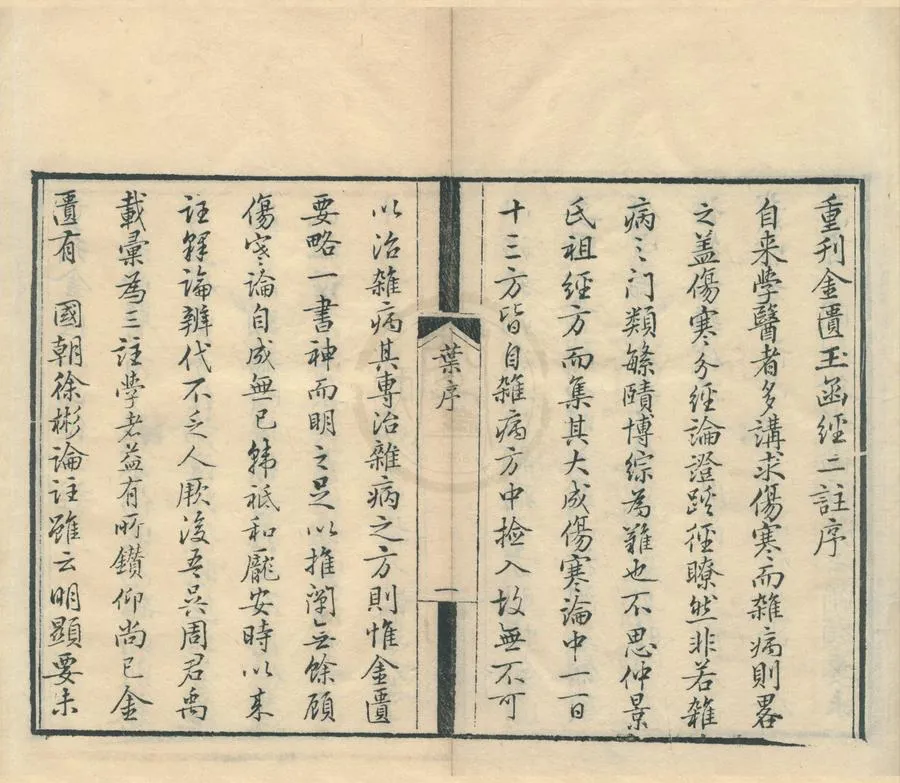 重刊金匱玉函經二註序
自来學醫者多講求傷寒而雜病則畧
之盖傷寒分經論證蹊徑瞭然非若雜
病之门類緐賾博綜為難也不思仲景
氏祖經方而集其大成傷寒論中一百
十三方皆自雜病方中捡入故無不可
葉序
一
以治雜病其專治雜病之方則惟金匱
要略一書神而明之足以推阐无餘顧
傷寒論自成無已韩祗和龐安時以来
註釋論辨代不乏人厥後吾吴周君禹
載彙為三註學者益有所鑚仰尚已金
匱有 國朝徐彬論註雖云明顯要未